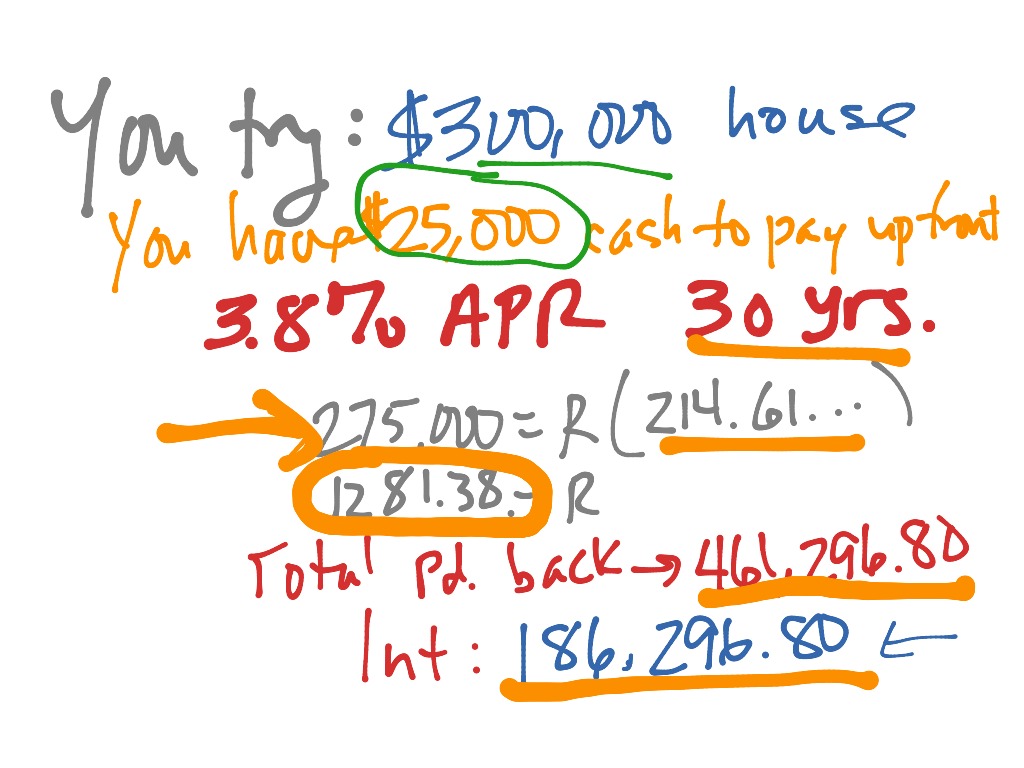 You try: $300,000 house
You have $25,000 cash to pay upfront
3.8% APR 30 yrs.
275.000 = R (214.61...)
1281.38 = R
Total Pd. back → 461,296.80
Int: 186,296.80 ←